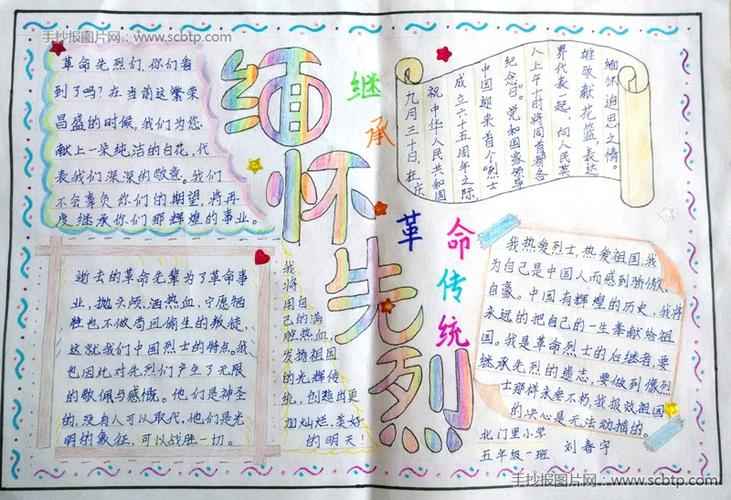 手抄报图片网:www.scbtp.com
革命先烈们,你们看
到了吗?在当前这繁荣
昌盛的时候,我们为您
献上一朵纯洁的白花,代
表我们深深的敬意。我们
不会辜负你们的期望,将再
度继承你们那辉煌的事业。
缅怀先烈
继承革命传统
九月三十日,在庆
祝中华人民共和国
成立六十五周年之际,
中国迎来首个“烈士
纪念日”。党和国家领导
人上午十时将同首都各
界代表一起,向人民英
雄敬献花篮,表达
缅怀追思之情。
逝去的革命先辈为了革命事
业,抛头颅,洒热血,宁愿牺
牲也不做苟活偷生的叛徒,
这就我们中国烈士的特点。我
也因此对先烈们产生了无限
的敬佩与感慨。他们是神圣
的,没有人可以取代。他们是光
明的象征,可以战胜一切。
我
将
用自
己的满
腔热血,
发扬祖国
的光辉传
统,创造出更
加灿烂,美好
的明天!
我热爱烈士,热爱祖国,我
为自己是中国人而感到骄傲,
自豪。中国有辉煌的历史,我将
永远的把自己的一生奉献给祖
国。我是革命烈士的后继者,要
继承先烈的遗志,要做到像烈
士那样永垂不朽。我报效祖国
的决心是无法动摇的
北门里小学
五年级一班 刘春宇
手抄报图片网:www.scbtp.com